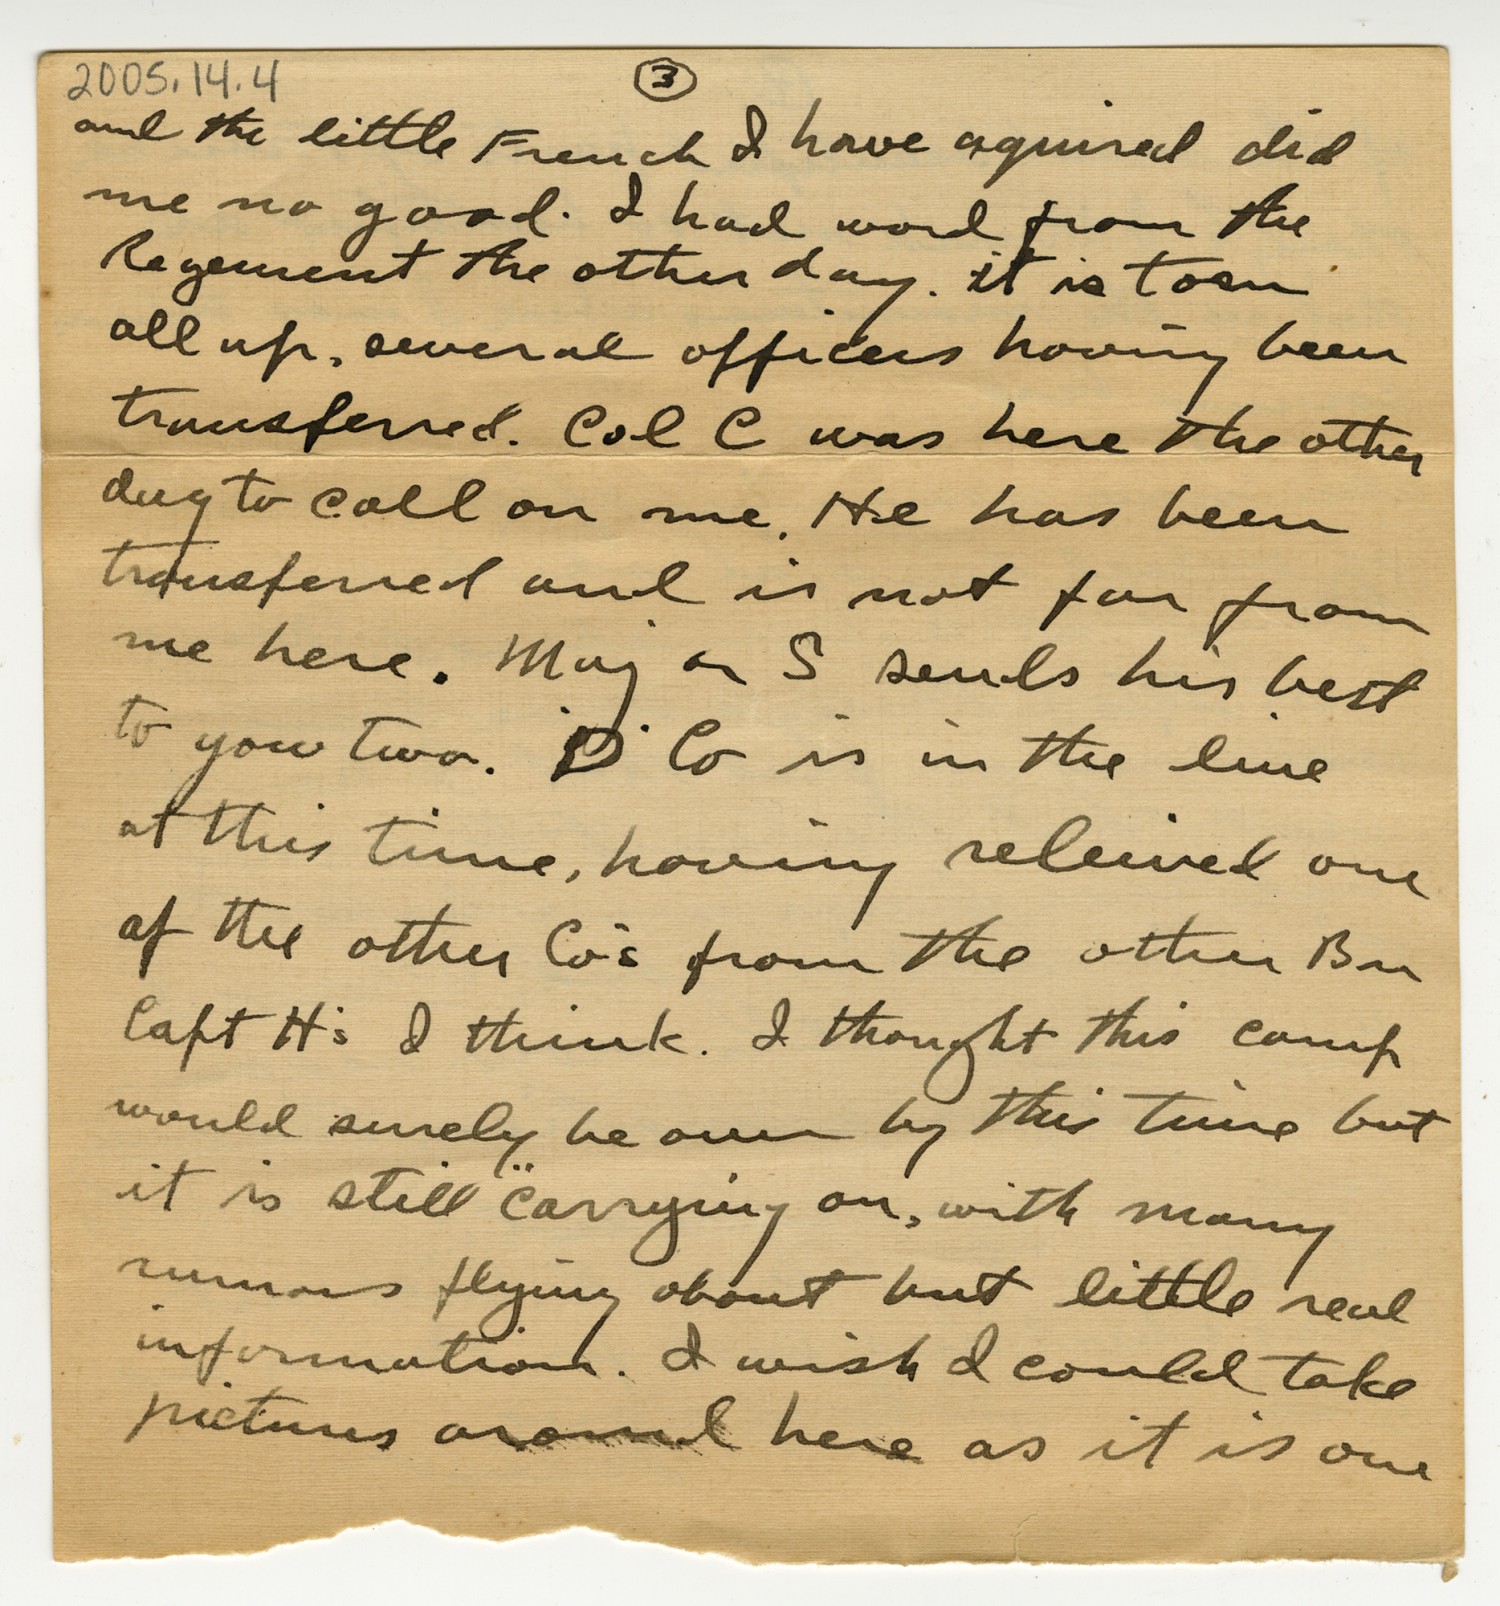 2005.14.4
3
and the little French I have aquired did
me no good. I had word from the
Regement the other day. it is torn
all up, several officers having been
transferred. Col C was here the other
day to call on me. He has been
transferred and is not far from
me here. Major S sends his best
to you two. "D" Co is in the line
at this time, having releived one
of the other Co's from the other Bn
Capt H's I think. I thought this camp
would surely be over by this time but
it is still "carrying on, with many
rumors flying about but little real
information. I wish I could take
pictures around here as it is one